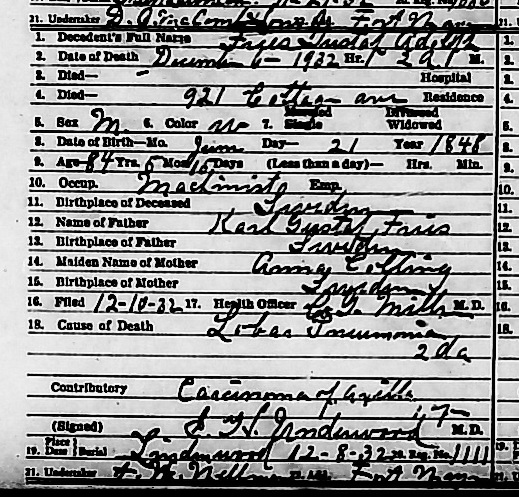 21. Undertaker D. O. McComb & Sons Ad. Fort Wayne
1. Decedent's Full Name Friis Gustaf Adolph
2. Date of Death December 6 - 1932 Hr. 1 M.
3. Died— - Hospital
4. Died— 921 Cottage ave Residence
5. Sex M. 6. Color W 7. Married Single Divorced Widowed
8. Date of Birth—Mo. June Day— 21 Year 1848
9. Age—84 Yrs. 5 Mos. 15 Days (Less than a day)— Hrs. Min.
10. Occup. Machinist Emp.
11. Birthplace of Deceased Sweden
12. Name of Father Karl Gustaf Friis
13. Birthplace of Father Sweden
14. Maiden Name of Mother Anna Colling
15. Birthplace of Mother Sweden
16. Filed 12-10-32 17. Health Officer M.D.
18. Cause of Death Lobar Pneumonia
2 da
Contributory Carcinoma of axilla
1 y -
(Signed) Underwood M.D.
19. Place Date Burial Lindenwood 12-8-32 20. Reg. No. 1111
21. Undertaker Ad. Fort Wayne